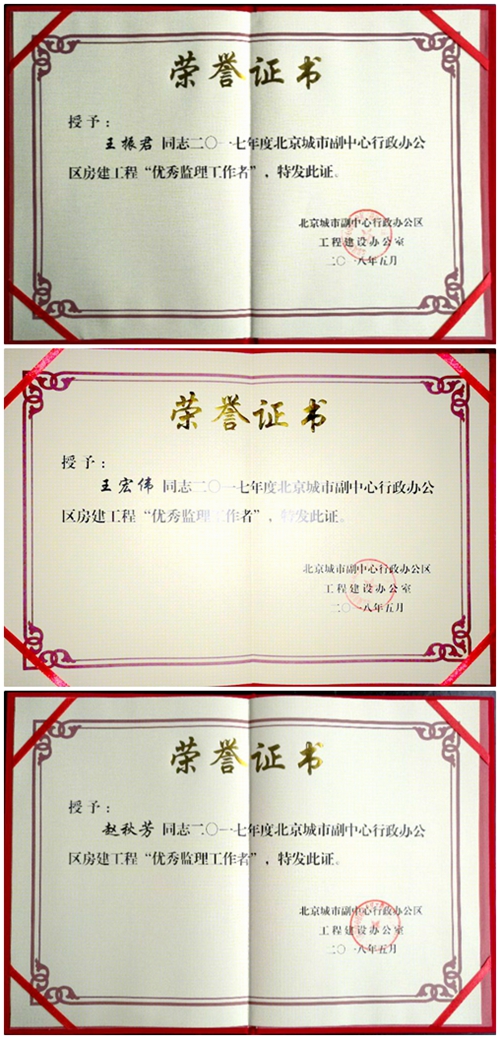 荣誉证书
授予：
王振君 同志二〇一七年度北京城市副中心行政办公
区房建工程“优秀监理工作者”，特发此证。
北京城市副中心行政办公区
工程建设办公室
二〇一八年五月
荣誉证书
授予：
王宏伟 同志二〇一七年度北京城市副中心行政办公
区房建工程“优秀监理工作者”，特发此证。
北京城市副中心行政办公区
工程建设办公室
二〇一八年五月
荣誉证书
授予：
赵秋芳 同志二〇一七年度北京城市副中心行政办公
区房建工程“优秀监理工作者”，特发此证。
北京城市副中心行政办公区
工程建设办公室
二〇一八年五月